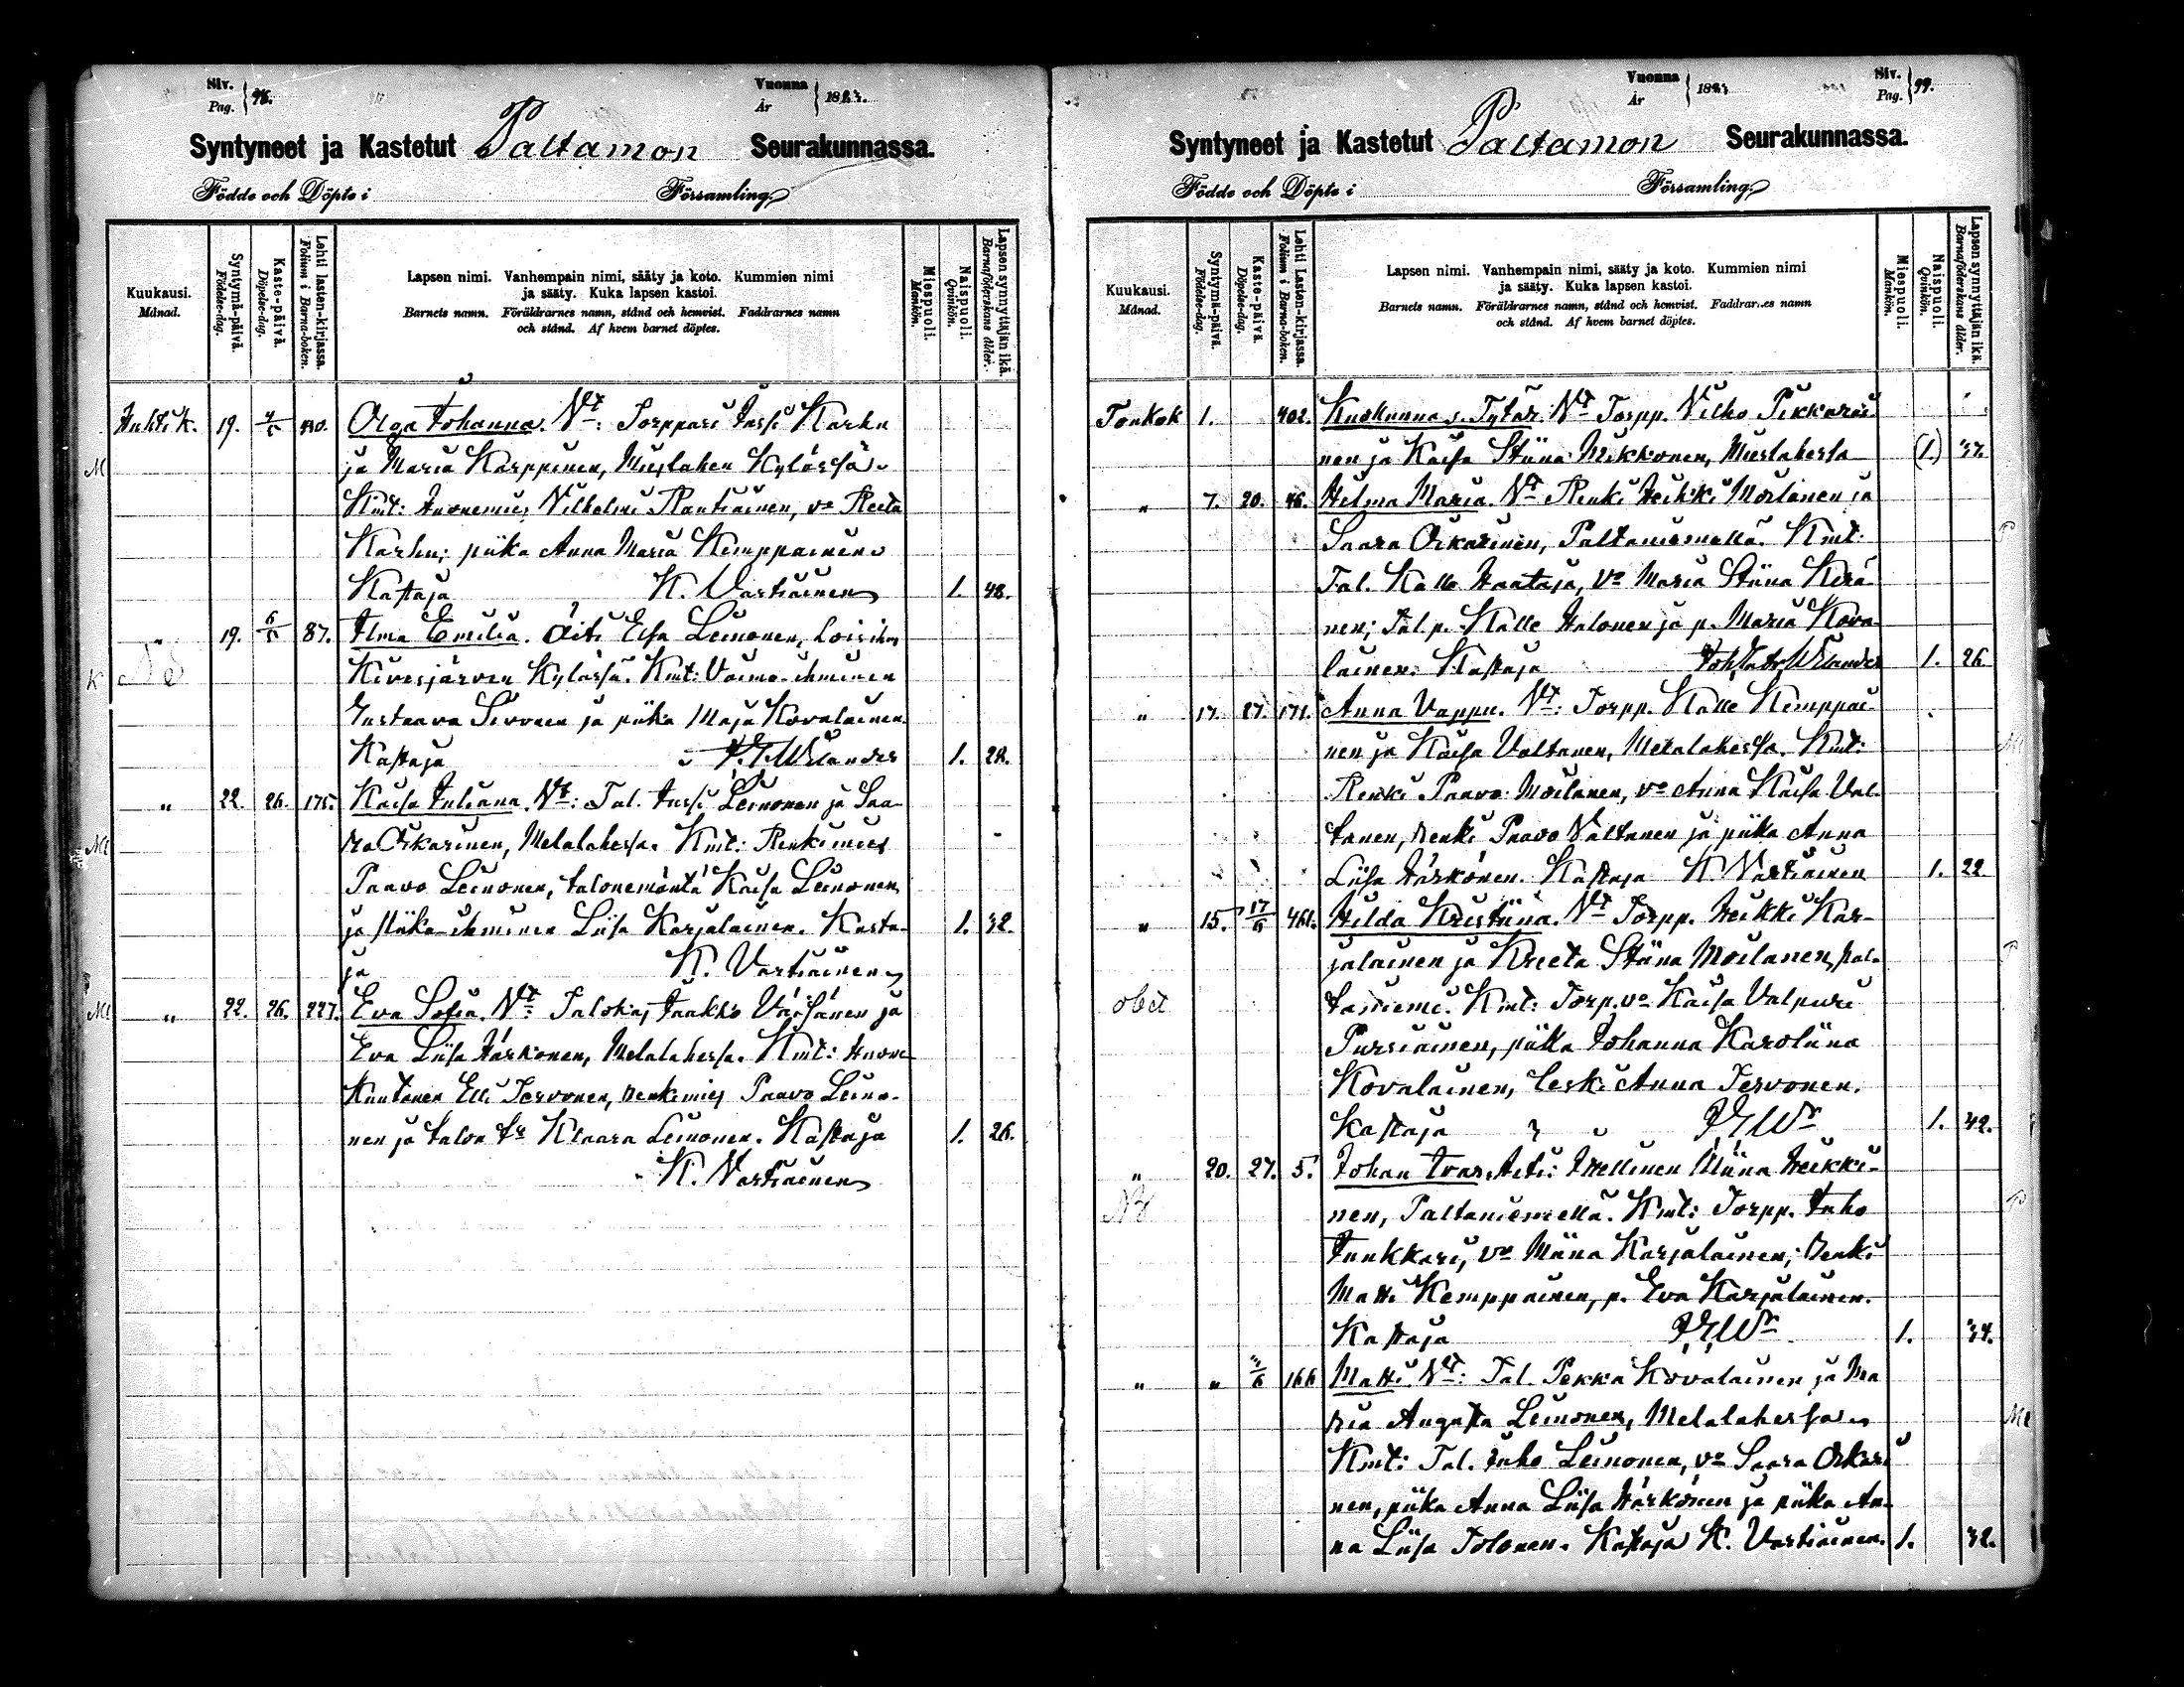 Siv. Pag. 98.
Vuonna År 188
Syntyneet ja Kastetut Paltamon Seurakunnassa.
Födde och Döpte i Församling.
Kuukausi. Månad.
Syntymä-päivä. Födelse-dag.
Kaste-päivä. Döpelse-dag.
Lehti lasten-kirjassa. Folium i Barna-boken.
Lapsen nimi. Vanhempain nimi, sääty ja koto. Kummien nimi
ja sääty. Kuka lapsen kastoi.
Barnets namn. Föräldrarnes namn, stånd och hemvist. Faddrarnes namn
och stånd. Af hvem barnet döptes.
Miespuoli. Mankön.
Naispuoli. Qvinkön.
Lapsen synnyttäjän ikä. Barnaföderskans ålder.
Huhtik. 19. Olga Johanna. Vt: Torppari Jussi Karhu
M ja Maria Karppinen, Mieslahen Kylässä.
Kmt: Huonemies Vilhelmi Rautiainen, vo Reeta
Karhu; piika Anna Maria Kemppainen.
Kastaja K. Vartiainen 1. 48.
" 19. 6/5 87. Ilma Emilia. Äiti Elsa Leinonen, Loisihm
K Kivesjärven Kylässä. Kmt: Vaimo-ihminen
Gustaava Sirvonen ja piika Maja Kovalainen.
Kastaja Welander 1. 28.
" 22. 26. 175. Kaisa Juliana. Vt: Tal. Jussi Leinonen ja Saa-
Me ra Oikarinen, Melalahessa. Kmt: Renkimies
Paavo Leinonen, talonemäntä Kaisa Leinonen
ja piika-ihminen Liisa Karjalainen. Kasta- 1. 32.
ja K. Vartiainen
Me " 22. 26. 227. Eva Sofia. Vt: Talokas Jaakko Väisänen ja
Eva Liisa Härkönen, Melalahessa. Kmt: Huone
Kuntanen Elli Tervonen, renkimies Paavo Leino-
nen ja talon tr Klaara Leinonen. Kastaja 1. 26.
K. Vartiainen
Vuonna År 188
Siv. Pag. 99.
Syntyneet ja Kastetut Paltamon Seurakunnassa.
Födde och Döpte i Församling.
Kuukausi. Månad.
Syntymä-päivä. Födelse-dag.
Kaste-päivä. Döpelse-dag.
Lehti Lasten-kirjassa. Folium i Barna-boken.
Lapsen nimi. Vanhempain nimi, sääty ja koto. Kummien nimi
ja sääty. Kuka lapsen kastoi.
Barnets namn. Föräldrarnes namn, stånd och hemvist. Faddrarnes namn
och stånd. Af hvem barnet döptes.
Miespuoli. Mankön.
Naispuoli. Qvinkön.
Lapsen synnyttäjän ikä. Barnaföderskans ålder.
Toukok 1. 402. Kuolunna s. Tytär. Vt Torpp. Vilho Pikkarai
nen ja Kaisa Stiina Mikkonen, Mieslahessa (1.) 37.
" 7. 20. 46. Hilma Maria. Vt Renki Heikki Moilanen ja
Saara Oikarinen, Paltaniemellä. Kmt:
Tal. Kalle Haataja, vo Maria Stiina Kerä
nen; Tal.p. Kalle Halonen ja p. Maria Kova-
lainen. Kastaja Welander 1. 26
" 17. 27. 171. Anna Vappu. Vt: Torpp. Kalle Kemppai
nen ja Kaisa Valtanen, Melalahessa. Kmt:
Renki Paavo Moilanen, vo Anna Kaisa Val-
tanen, renki Paavo Valtanen ja piika Anna
Liisa Härkönen. Kastaja K. Vartiainen 1. 22
" 15. 17/6 461. Hilda Kristiina. Vt Torpp. Heikki Kar-
jalainen ja Kreeta Stiina Moilanen, Pal-
obiit taniemi. Kmt: Torp.vo Kaisa Valpuri
Pursiainen, piika Johanna Karoliina
Kovalainen, leski Anna Tervonen.
Kastaja 1. 42.
" 20. 27. 5. Johan Ivar. Äiti: Itsellinen Miina Heikki-
nen, Paltaniemellä. Kmt: Torpp. Juho
Junkkari, vo Miina Karjalainen; Renki
Matti Kemppainen, p. Eva Karjalainen.
Kastaja 1. 34.
" " 166 Matti. Vt: Tal. Pekka Kovalainen ja Ma
ria Augusta Leinonen, Melalahessa. Me
Kmt: Tal. Juho Leinonen, vo Saara Oikari
nen, piika Anna Liisa Härkönen ja piika An-
na Liisa Tolonen. Kastaja K. Vartiainen. 1. 32.